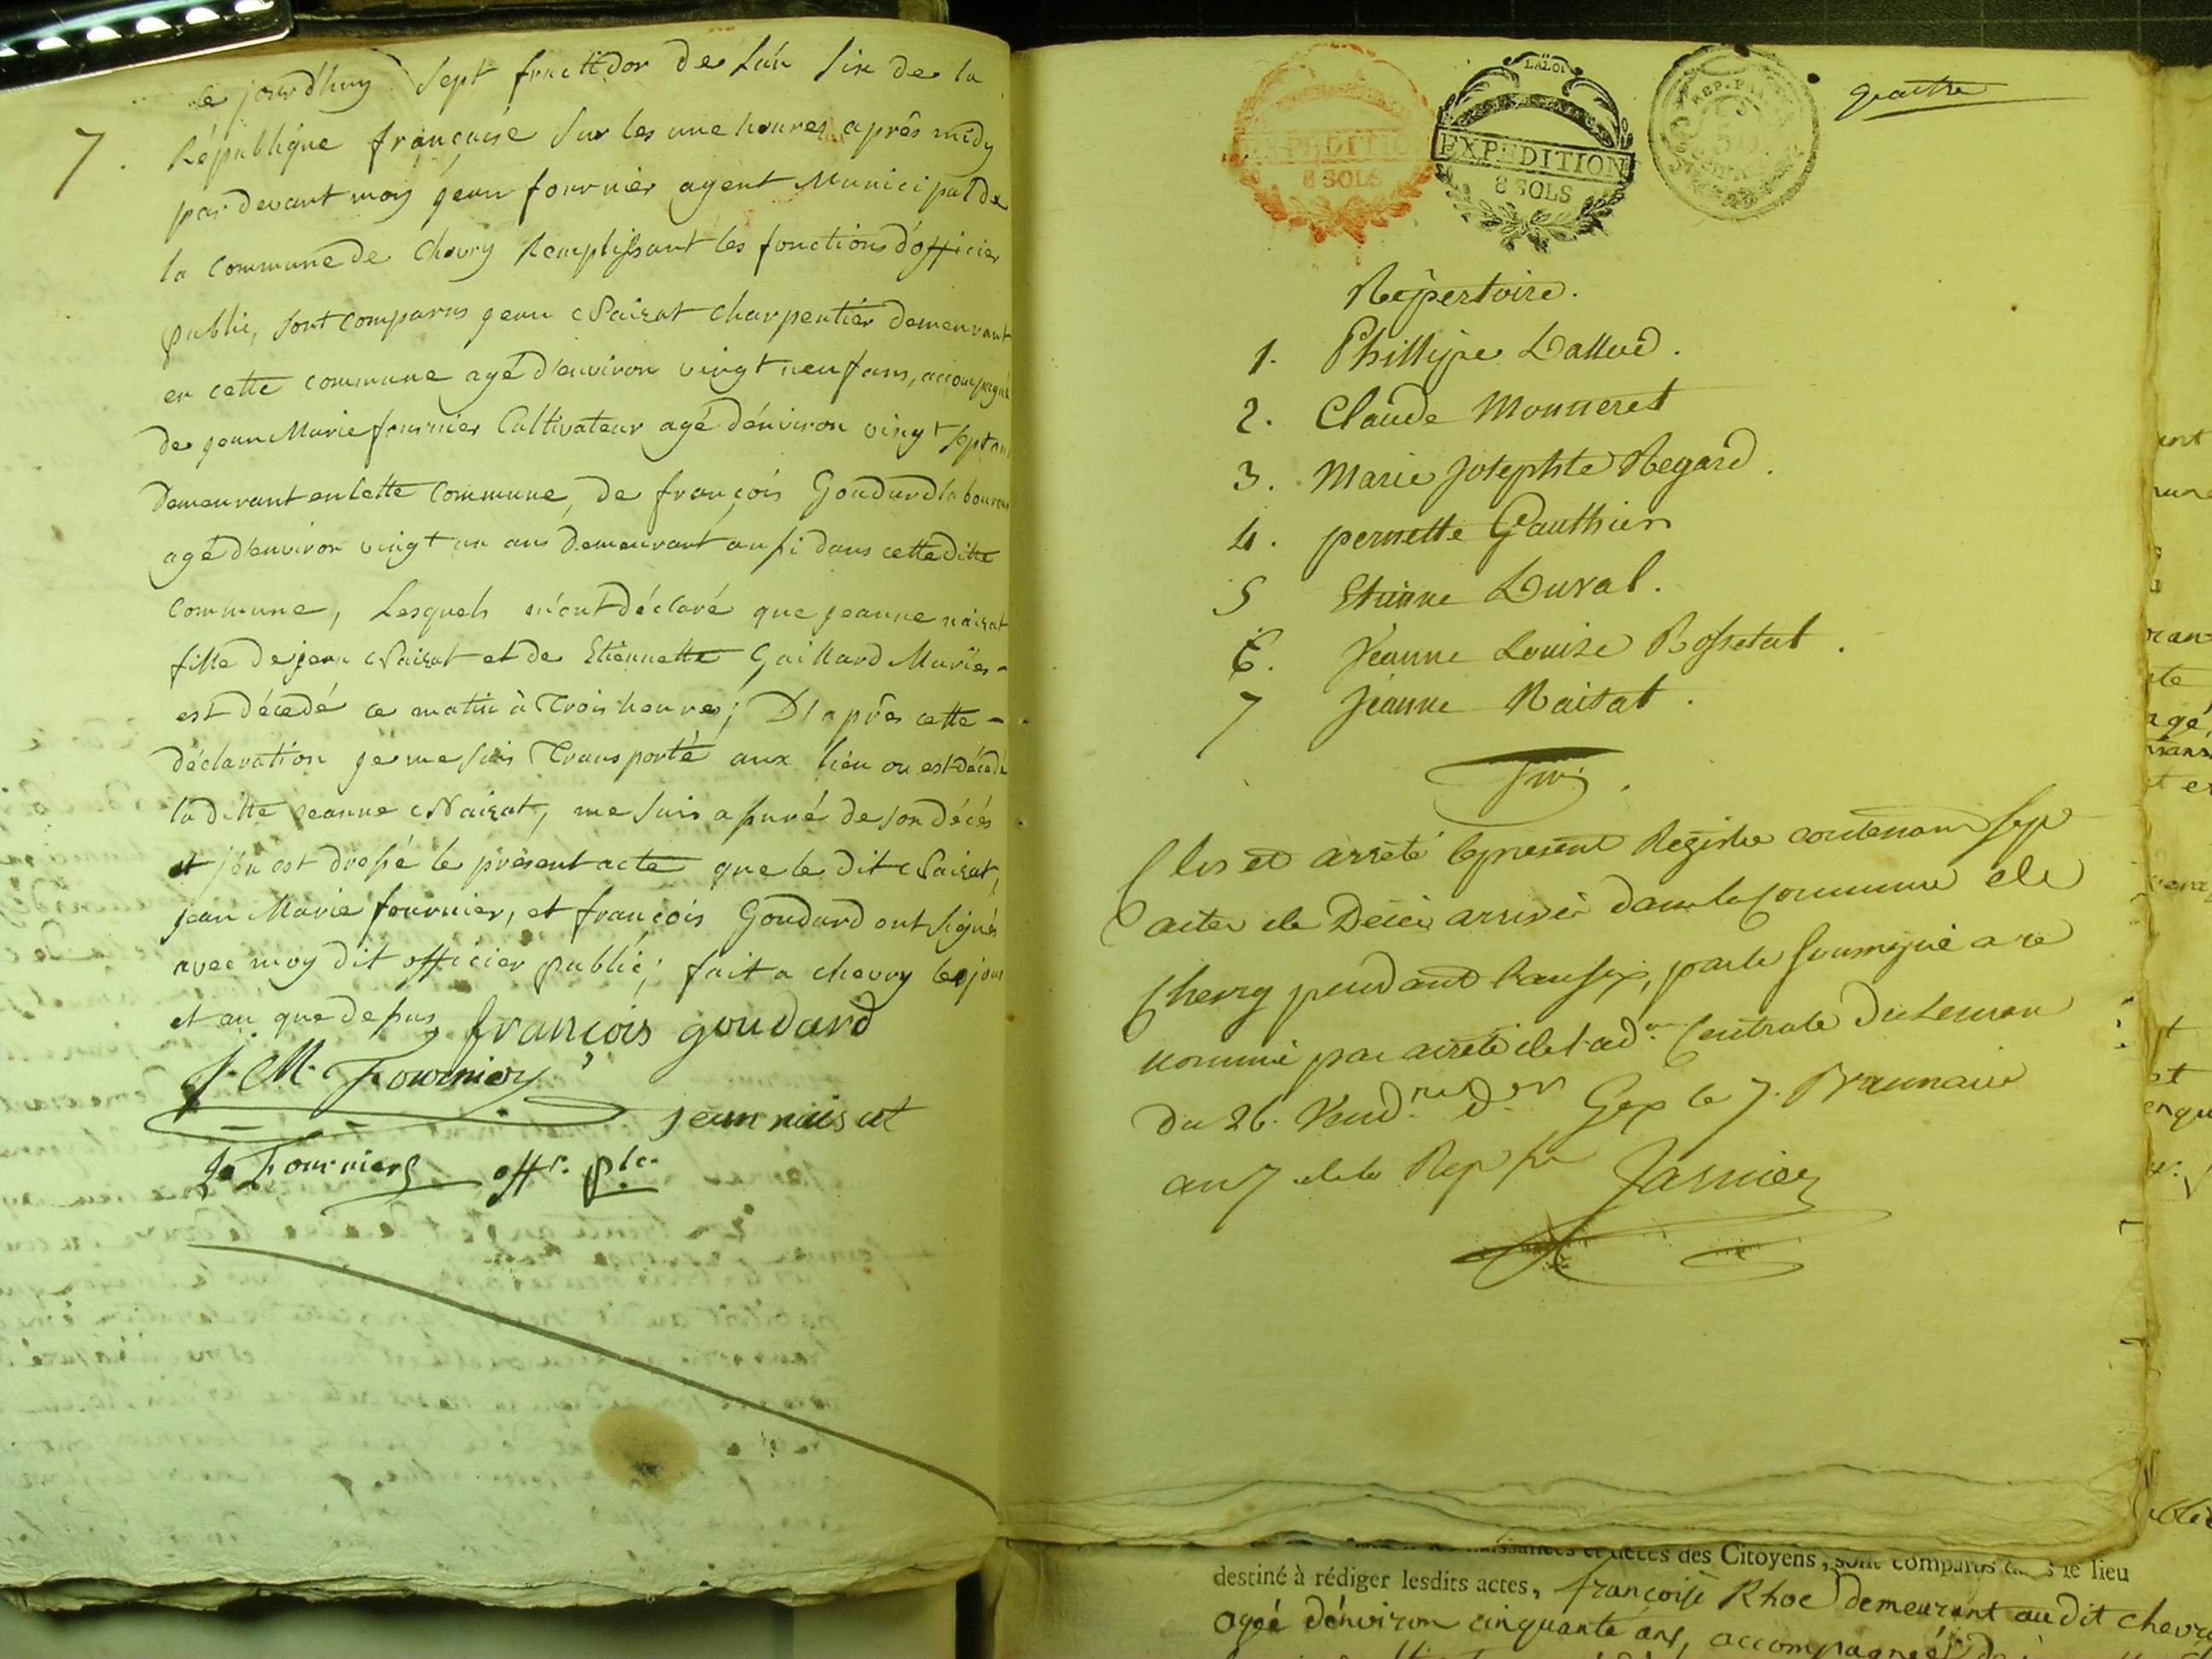 7.
Ce jourdhuy sept fructidor de Lán six de la
République françoise sur les une heures aprés midy
par devant moy jean fournier agent Municipal de
la commune de Chevry Remplissant les fonctions d'officier
public, sont comparus jean Naizat charpentiér demeurant
en cette commune agé d'environ vingt neuf ans, accompagné
de jean Marie fournier Cultivateur agé d'énviron vingt sept ans
Demeurant en cette commune, de françois Goudard laboureur
agé d'environ vingt un ans Demeurant aussi dans cette ditte
commune, Lesquels m'ont déclaré que jeanne naizat
fille de jean Naizat et de Etiennette Gaillard Mariés -
est décedé ce matin à Trois heures; D'aprés cette -
déclaration je me suis Transporté aux lieu ou est décedé
la ditte jeanne Naizat, me suis assuré de son décés
et j'en est drossé le présent acte que le dit Naizat,
jean Marie fournier, et françois Goudard ont signés
avec moy dit officier public; fait a chevry les jour
et an que dessus
françois goudard
J. M. Fournier
jean naisat
J. Fournier offr. plc.
LA LOI
EXPEDITION
8 SOLS
EXPEDITION
8 SOLS
quatre
Répertoire.
1. Phillipe Dallud.
2. Claude Monneret
3. Marie Josephte Regard.
4. pernette Gauthier
5 Etienne Duval.
6. Jeanne Louise Bossetat.
7 Jeanne Naisat.
Fin.
Clos et arreté le present Registre contenant sept
actes de Décès arrivés dans la Commune de
Chevry pendant l'an six, par le soussigné a ce
nommé par arreté de l'ad.on Centrale du Leman
Du 26. Vend.re d.er Gex le 7. Brumaire
an 7 de la Rep fr
Jasnier
naissances et décès des Citoyens, sont comparus dans le lieu
destiné à rédiger lesdits actes, françoise Rhoe demeurant audit chevry
agée dénviron cinquante ans, accompagnée de